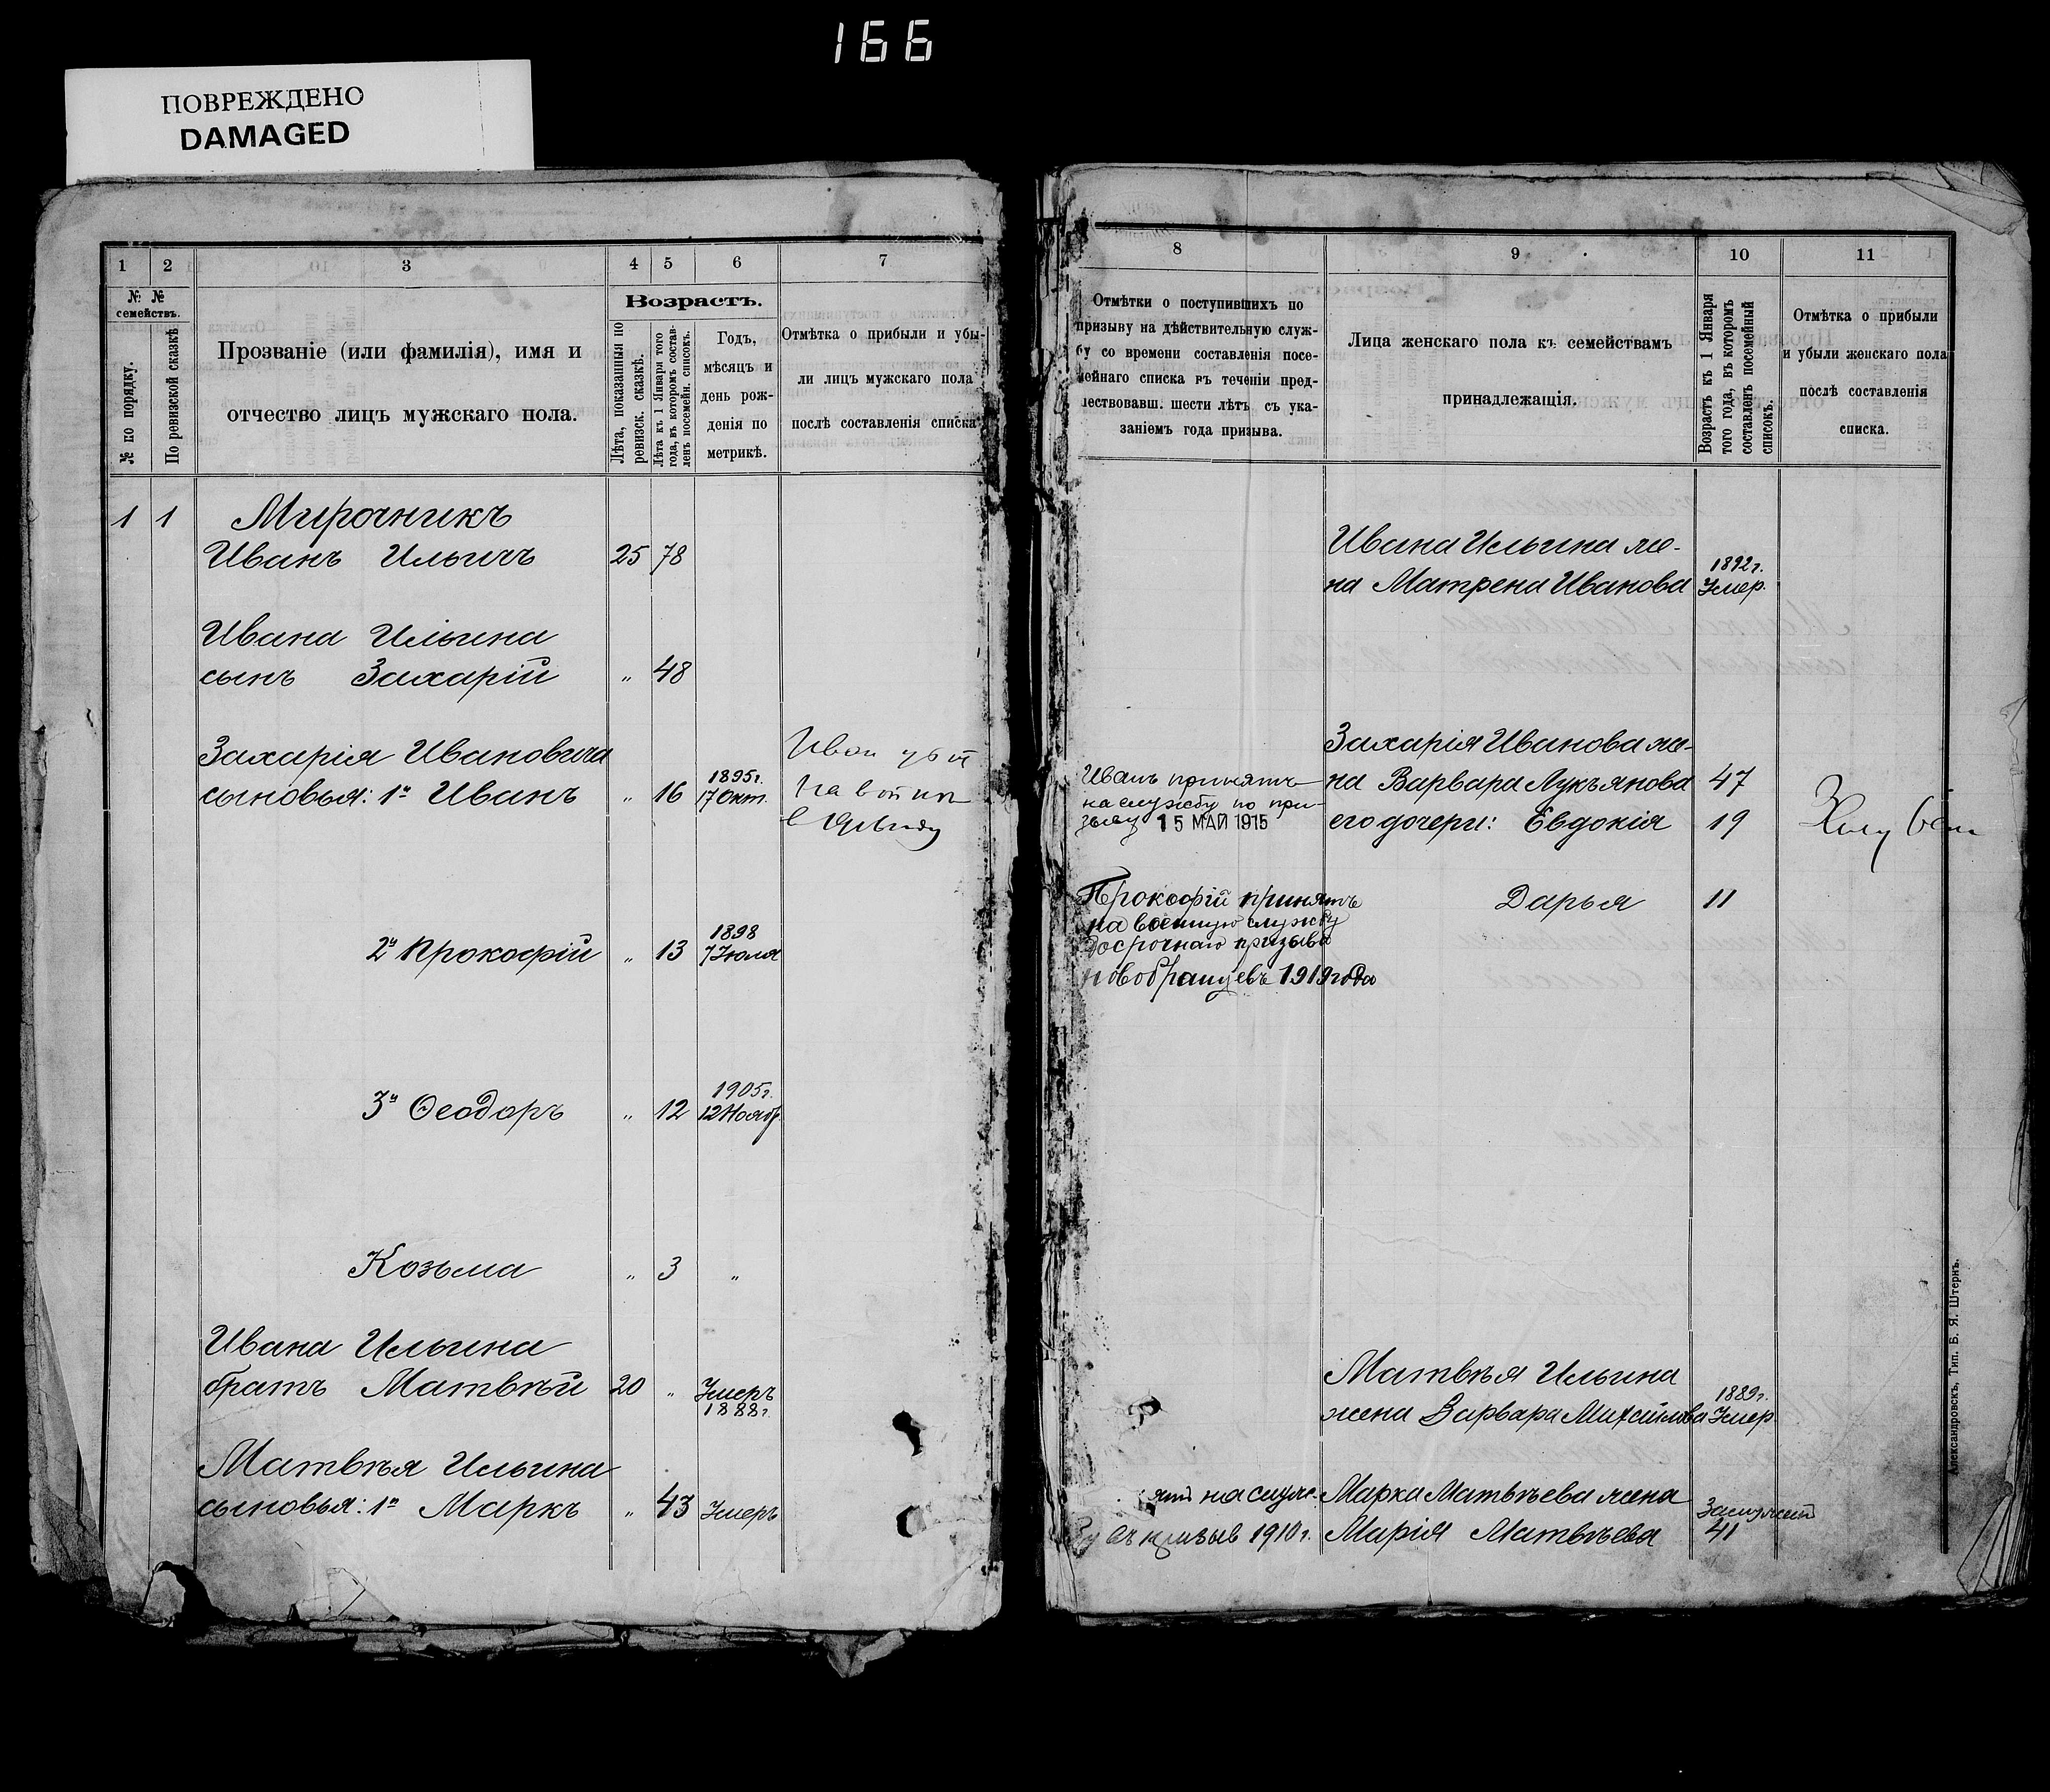 166
ПОВРЕЖДЕНО
DAMAGED
1 2 3 4 5 6 7
№ № семействъ.
№ по порядку.
По ревизской сказкѣ
Прозваніе (или фамилія), имя и
отчество лицъ мужскаго пола.
Возрастъ.
Лѣта, показанныя по
ревизск. сказкѣ.
Лѣта къ 1 Января того
года, въ которомъ состав-
ленъ посемейн. списокъ.
Годъ,
мѣсяцъ и
день рож-
денія по
метрикѣ.
Отмѣтка о прибыли и убы-
ли лицъ мужскаго пола
послѣ составленія списка
1 1 Мирочникъ
Иванъ Ильичъ 25 78
Ивана Ильина
сынъ Захарій " 48
Захарія Ивановича
сыновья: 1й Иванъ " 16 1895г. 17 Окт.
2й Прокофій " 13 1898 7 Іюля
3й Ѳеодоръ " 12 1905г. 12 Ноябр.
Козьма " 3 "
Ивана Ильина
братъ Матвѣй 20 " Умеръ
1888г.
Матвѣя Ильина
сыновья: 1й Маркъ " 43 Умеръ
8 9 10 11
Отмѣтки о поступившихъ по
призыву на дѣйствительную служ-
бу со времени составленія посе-
мейнаго списка въ теченіи пред-
шествовавш. шести лѣтъ съ ука-
заніемъ года призыва.
Лица женскаго пола къ семействамъ
принадлежащія.
Возрастъ къ 1 Января
того года, въ которомъ
составленъ посемейный
списокъ.
Отмѣтка о прибыли
и убыли женскаго пола
послѣ составленія
списка.
Ивана Ильина же-
на Матрена Иванова 1892г. Умер.
Захарія Иванова же-
на Варвара Лукъянова 47
его дочери: Евдокія 19
Иванъ принятъ
на службу по при-
зыву 15 МАЙ 1915
Дарья 11
Прокофій принятъ
на военную службу
досрочнаго призыва
новобранцевъ 1919 года
Матвѣя Ильина
жена Варвара Михайлова 1889г. Умер.
на служ-
въ призыв 1910г.
Марка Матвѣева жена
Марія Матвѣева 41
Александровскъ, Тип. Б. Я. Штернъ.